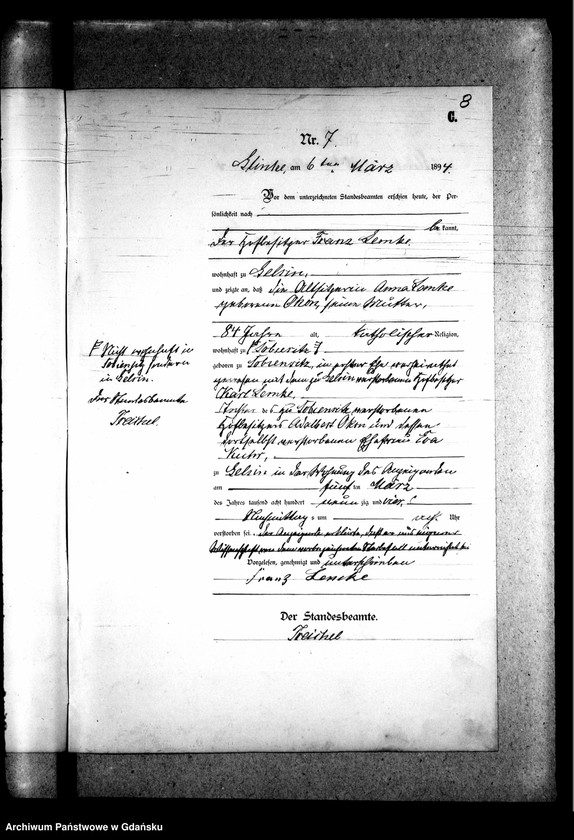 8
C.
Nr. 7.
Glinke, am 6 ten März 1894.
Vor dem unterzeichneten Standesbeamten erschien heute, der Per-
sönlichkeit nach
be kannt,
der Hofbesitzer Franz Lemke
wohnhaft zu Gelsin,
und zeigte an, daß die Altsitzerin Anna Lemke
geborene Okon, seine Mutter,
84 Jahre alt, katholischer Religion,
wohnhaft zu
geboren zu in erster Ehe verheirathet
gewesen mit dem zu Gelsin verstorbenen Hofbesitzer
Karl Lemke,
Tochter des zu verstorbenen
Hofbesitzers Adalbert Okon und dessen
daselbst verstorbenen Ehefrau Eva
zu Gelsin in der Wohnung des Anzeigenden
am fünften März
des Jahres tausend acht hundert neunzig und vier
Nachmittags um Uhr
verstorben sei. Der Anzeigende erklärte, daß er aus eigener
Wissenschaft von dem vorbezeichneten Sterbefall unterrichtet sei
Vorgelesen, genehmigt und unterschrieben
Franz Lemke
Der Standesbeamte.
Treichel
Nicht wohnhaft in
sondern
in Gelsin.
Der Standesbeamte
Treichel.
Archiwum Państwowe w Gdańsku